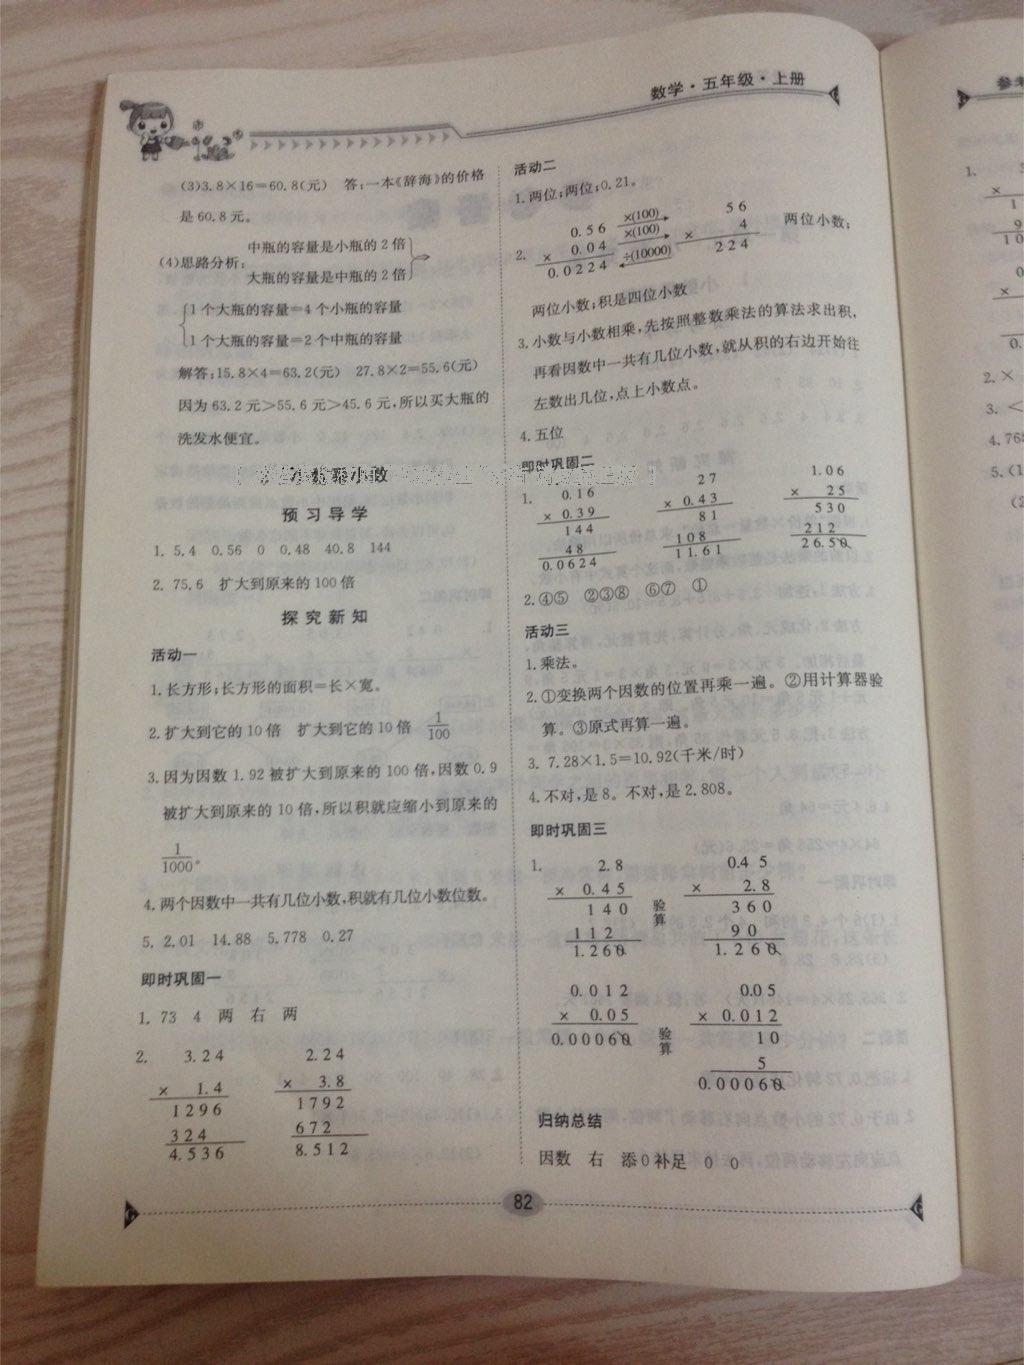 数学·五年级·上册
(3)3.8×16=60.8(元) 答:一本《辞海》的价格
是60.8元。
(4)思路分析:
中瓶的容量是小瓶的2倍
大瓶的容量是中瓶的2倍
1个大瓶的容量=4个小瓶的容量
1个大瓶的容量=2个中瓶的容量
解答:15.8×4=63.2(元) 27.8×2=55.6(元)
因为63.2元>55.6元>45.6元,所以买大瓶的
洗发水便宜。
小数乘小数
预习导学
1. 5.4 0.56 0 0.48 40.8 144
2. 75.6 扩大到原来的100倍
探究新知
活动一
1.长方形;长方形的面积=长×宽。
2.扩大到它的10倍 扩大到它的10倍 1/100
3.因为因数1.92被扩大到原来的100倍,因数0.9
被扩大到原来的10倍,所以积就应缩小到原来的
1/1000。
4.两个因数中一共有几位小数,积就有几位小数位数。
5. 2.01 14.88 5.778 0.27
即时巩固一
1. 73 4 两 右 两
2. 3.24 2.24
× 1.4 × 3.8
1296 1792
324 672
4.536 8.512
活动二
1.两位;两位;0.21。
2. 0.56 ×(100) 56 两位小数;
× 0.04 ×(100) × 4
0.0224 ÷(10000) 224
两位小数;积是四位小数
3.小数与小数相乘,先按照整数乘法的算法求出积,
再看因数中一共有几位小数,就从积的右边开始往
左数出几位,点上小数点。
4.五位
即时巩固二
1. 0.16 27 1.06
× 0.39 × 0.43 × 25
144 81 530
48 108 212
0.0624 11.61 26.50
2.④⑤ ②③⑧ ⑥⑦ ①
活动三
1.乘法。
2.①变换两个因数的位置再乘一遍。②用计算器验
算。③原式再算一遍。
3. 7.28×1.5=10.92(千米/时)
4.不对,是8。不对,是2.808。
即时巩固三
1. 2.8 0.45
× 0.45 验算 × 2.8
140 360
112 90
1.260 1.260
0.012 0.05
× 0.05 验算 × 0.012
0.00060 10
5
0.00060
归纳总结
因数 右 添0补足 0 0
82
参考
1.
2.×
3.<
4.768
5.(1
(2